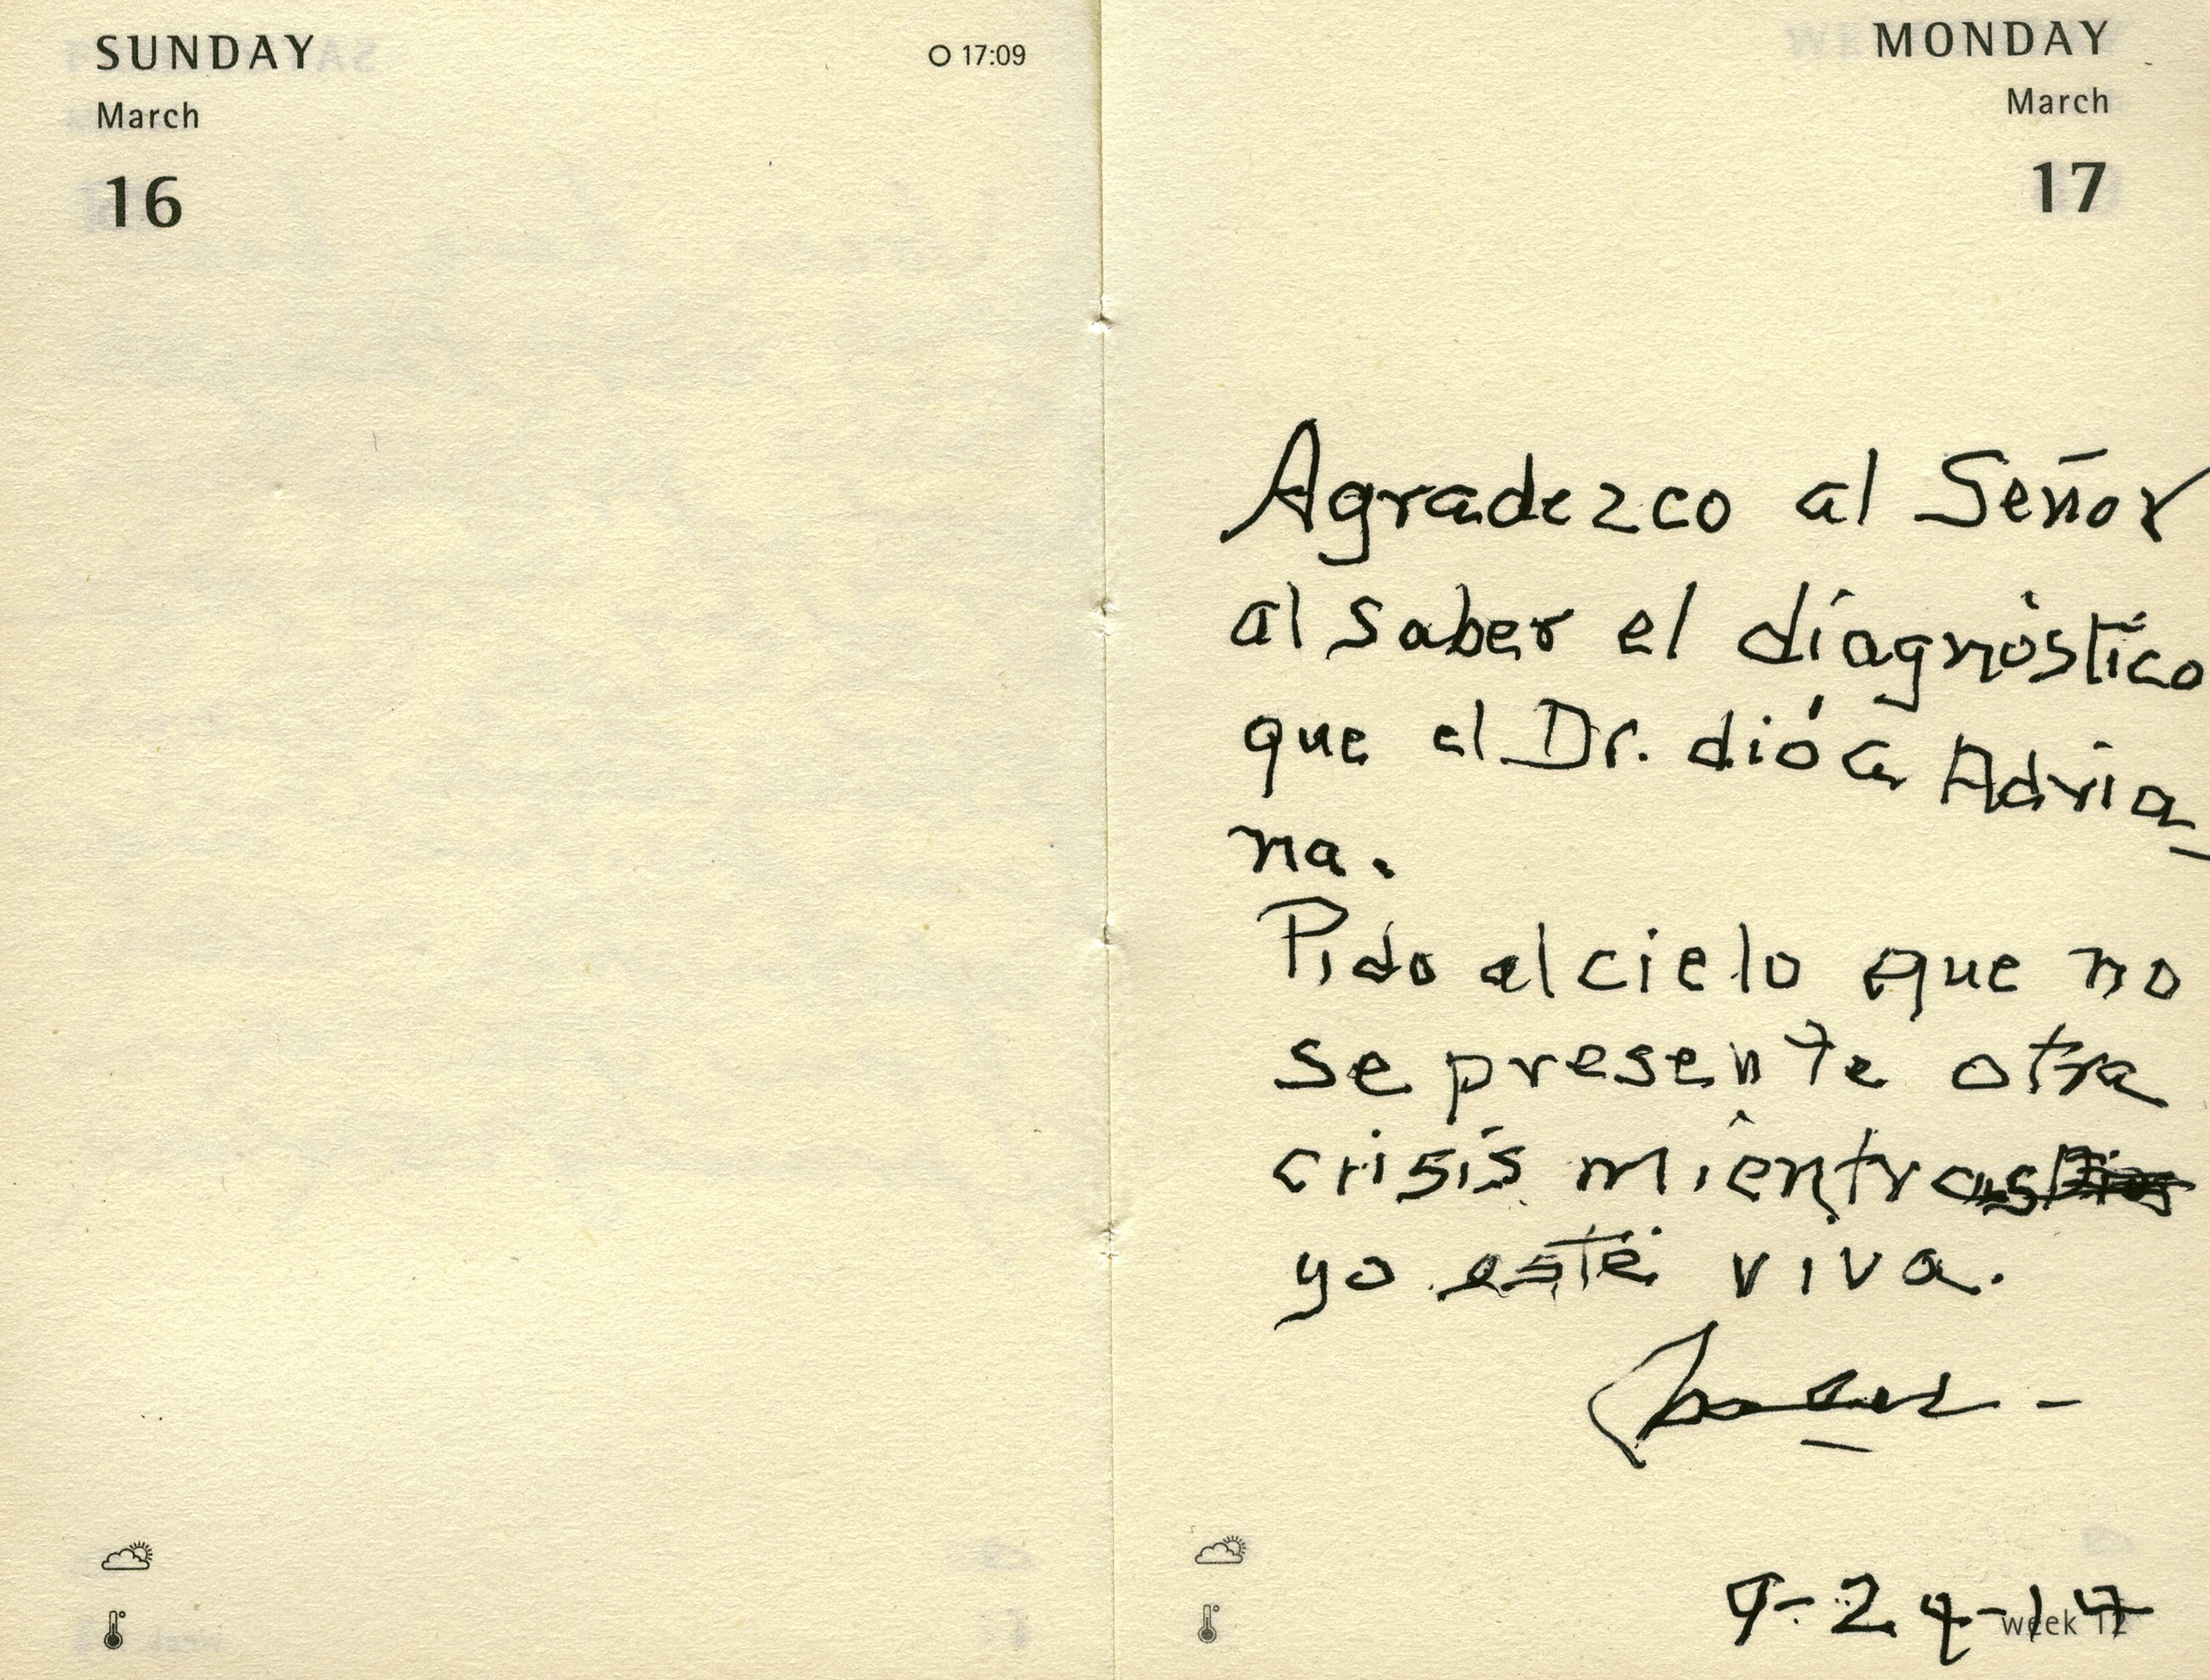 SUNDAY
March
16
17:09
MONDAY
March
17
Agradezco al Señor
al saber el diagnóstico
que el Dr. dió a Adria_
na.
Pido al cielo que no
se presente otra
crisis mientras
yo esté viva.
9-24-17
week 12